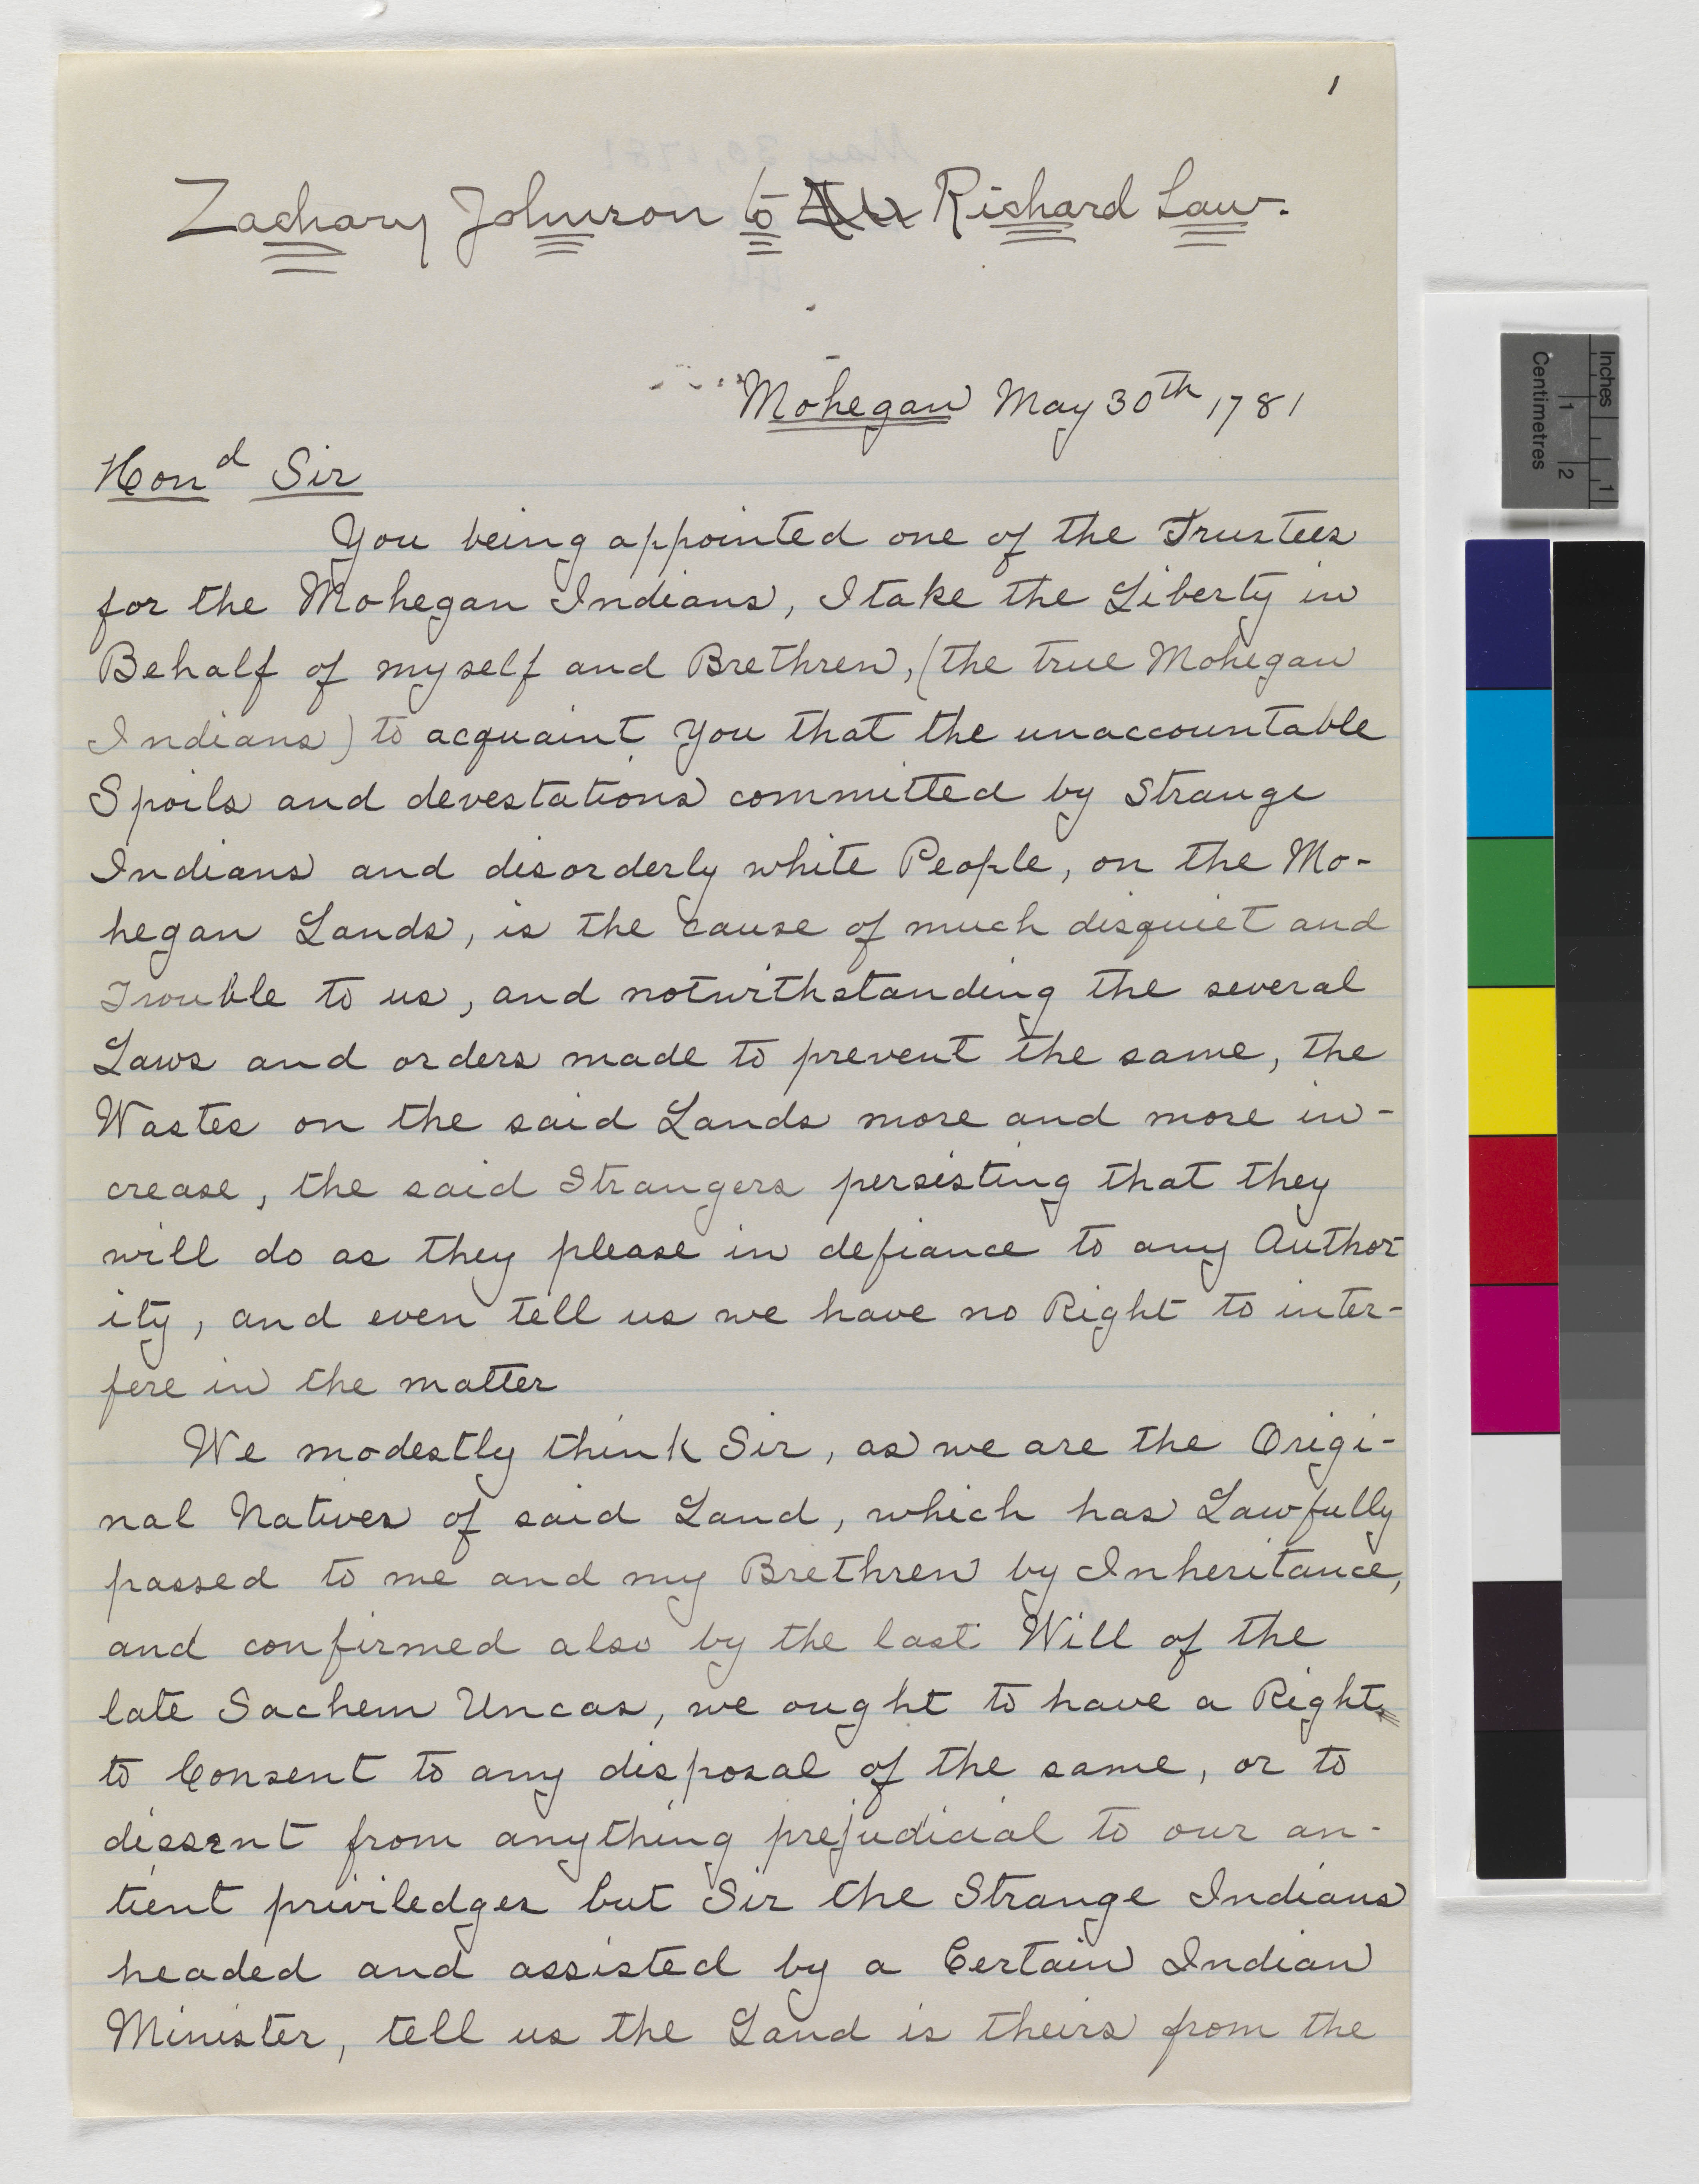 1
Zachary Johnson to Richard Law.
Mohegan May 30th, 1781
Hond Sir
You being appointed one of the Trustees
for the Mohegan Indians, I take the Liberty in
Behalf of myself and Brethren, (the true Mohegan
Indians) to acquaint you that the unaccountable
Spoils and devestations committed by Strange
Indians and disorderly white People, on the Mo-
hegan Lands, is the cause of much disquiet and
Trouble to us, and notwithstanding the several
Laws and orders made to prevent the same, the
Wastes on the said Lands more and more in-
crease, the said Strangers persisting that they
will do as they please in defiance to any Author-
ity, and even tell us we have no Right to inter-
fere in the matter
We modestly think Sir, as we are the Origi-
nal Natives of said Land, which has Lawfully
passed to me and my Brethren by Inheritance,
and confirmed also by the last Will of the
late Sachem Uncas, we ought to have a Right
to Consent to any disposal of the same, or to
dissent from anything prejudicial to our an-
tient priviledges but Sir the Strange Indians
headed and assisted by a Certain Indian
Minister, tell us the Land is theirs from the
Inches
Centimetres
1
2
1